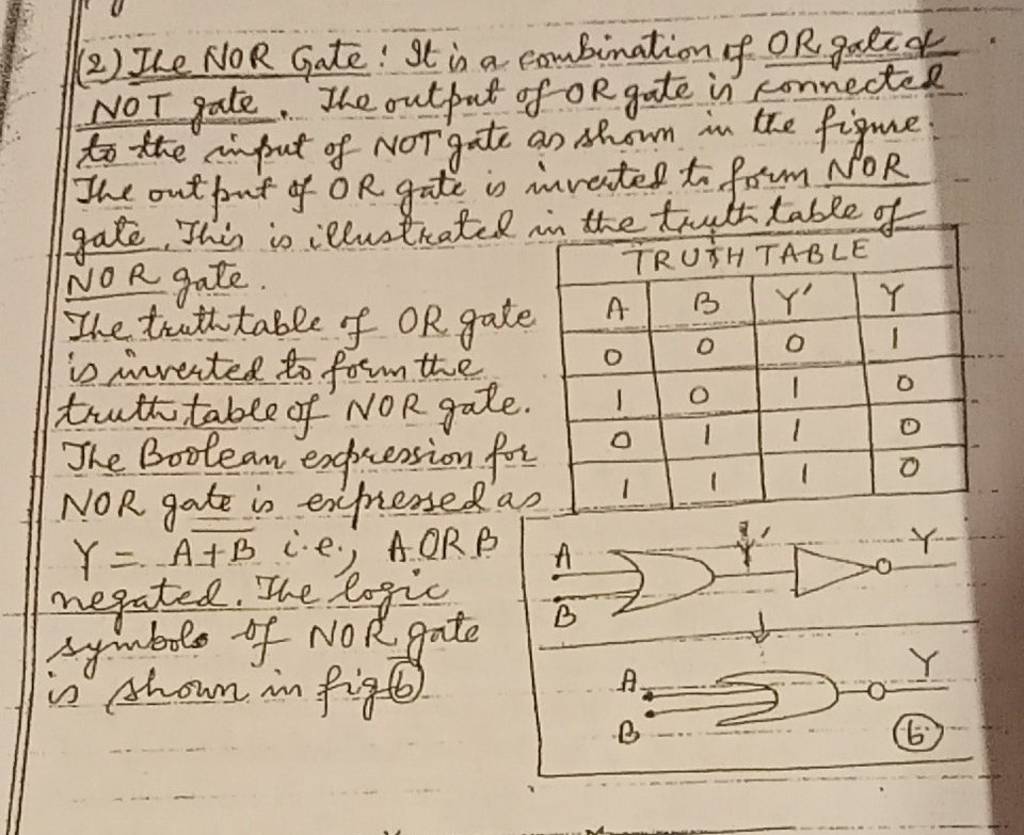 (2) The NOR Gate : It is a combination of OR gate &
NOT gate. The output of OR gate is connected
to the input of NOT gate as shown in the figure.
The output of OR gate is inverted to form NOR
gate. This is illustrated in the truth table of
NOR gate.
The truth table of OR gate
is inverted to form the
truth table of NOR gate.
The Boolean expression for
NOR gate is expressed as
Y = A̅+̅B̅ i.e., A OR B
negated. The logic
symbols of NOR gate
is shown in fig (b)
TRUTH TABLE
A B Y' Y
0 0 0 1
1 0 1 0
0 1 1 0
1 1 1 0
A Y' Y
B
A Y
B
(b)